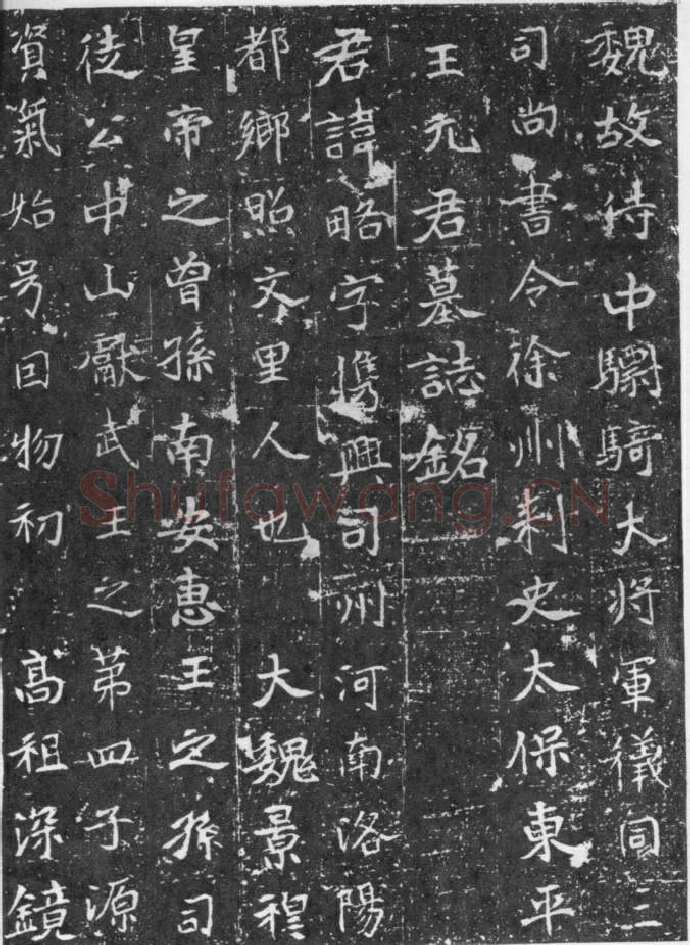 魏故侍中驃騎大將軍儀同三
司尚書令徐州刺史太保東平
王元君墓誌銘
君諱略字儁興司州河南洛陽
都鄉照文里人也 大魏景穆
皇帝之曾孫南安惠王之孫司
徒公中山獻武王之第四子源
資氣始号回物初 高祖深鏡
Shufawang.CN